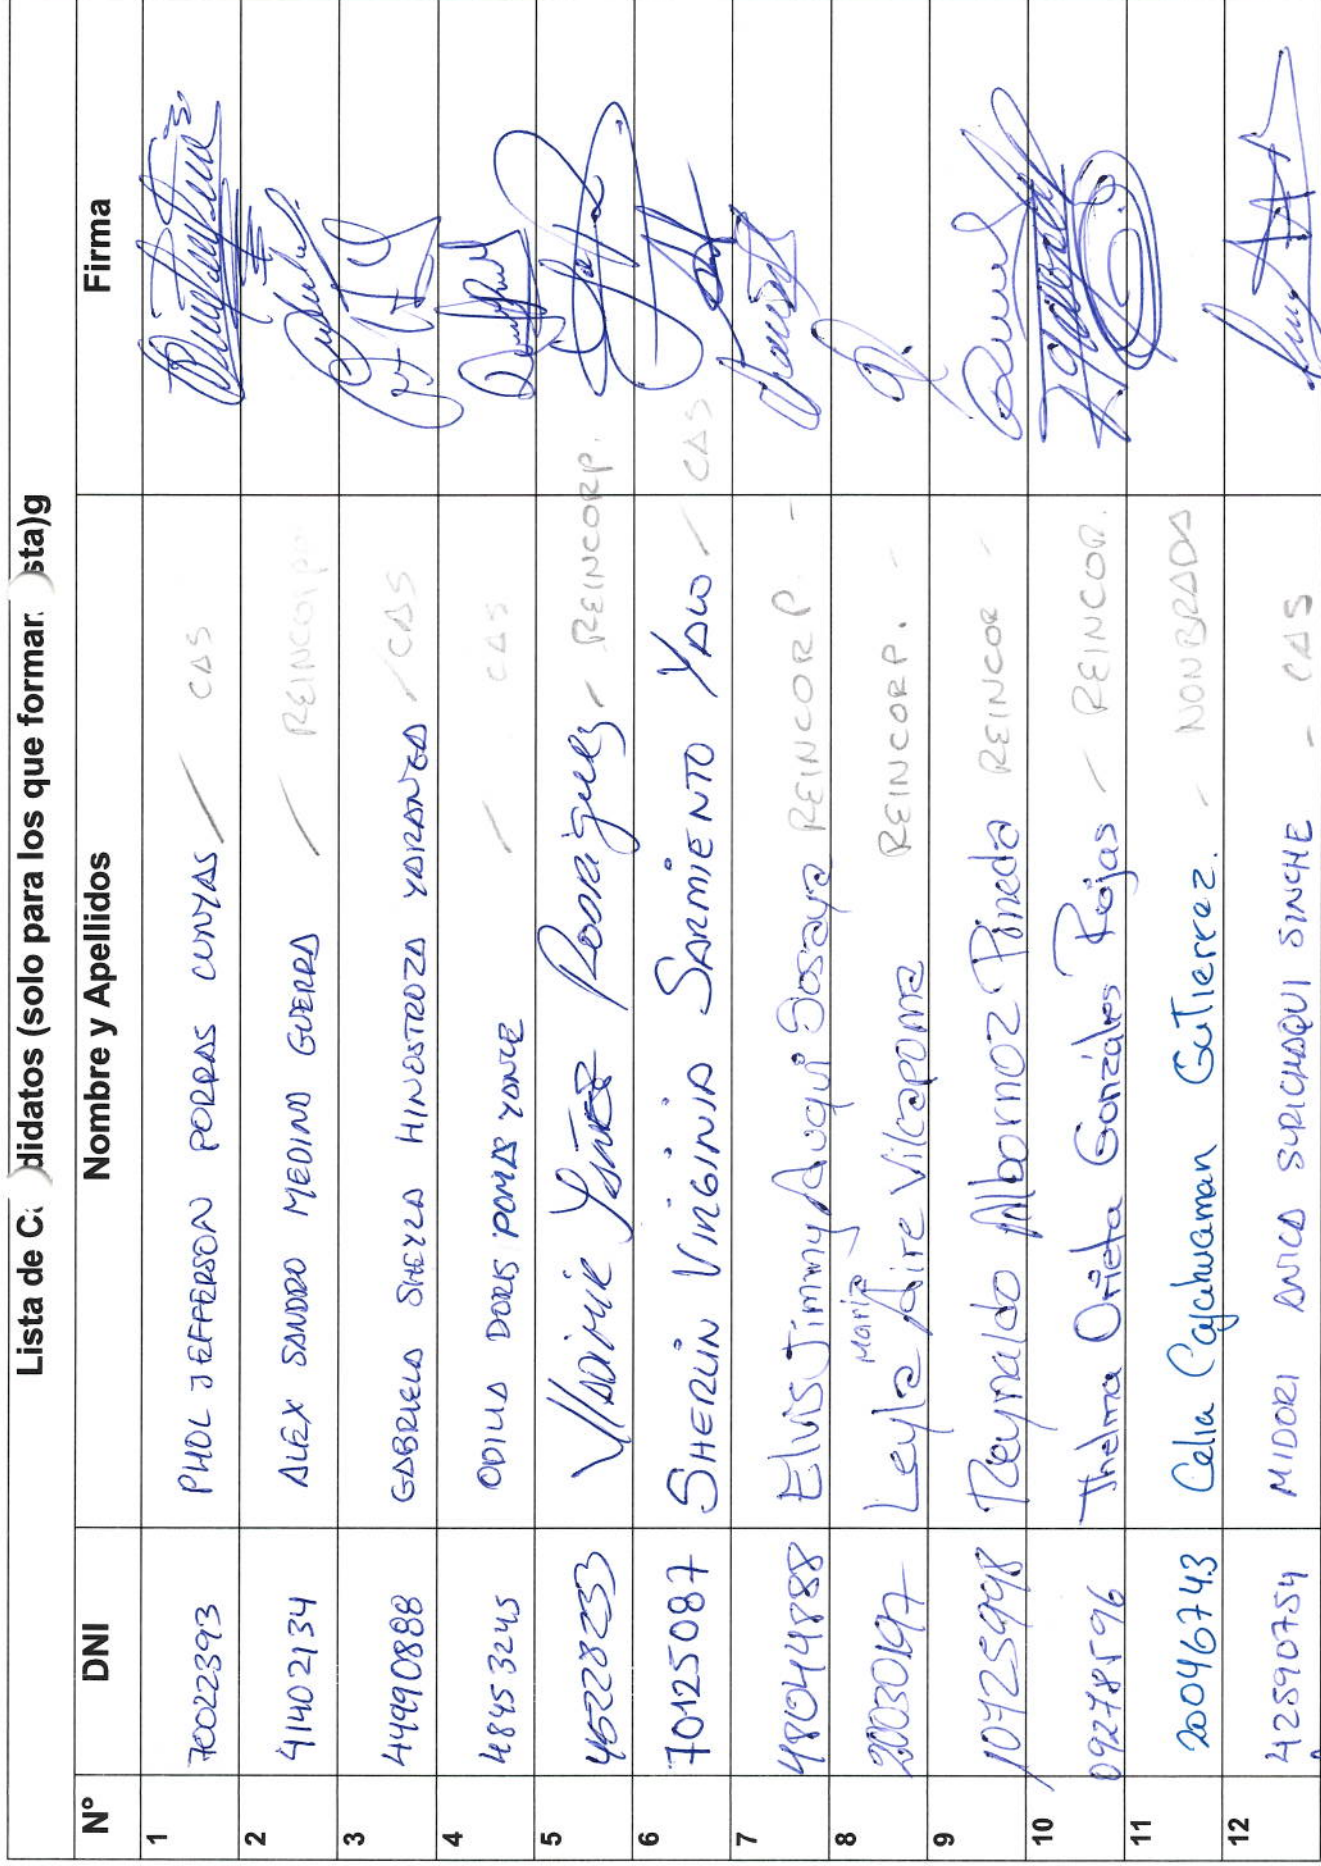 Lista de C didatos (solo para los que formar sta)g
N° DNI Nombre y Apellidos Firma
1 70022393 PHOL JEFFERSON PORRAS CUNYAS / CAS
2 41402134 ALEX SANDRO MEDINA GUERRA / REINCORP
3 44990888 GABRIELA SHEYLA HINOSTROZA YARANGA / CAS
4 48453245 ODILIA DORIS POMA YONCE / CAS
5 45228233 VLADIMIR YAÑEZ RODRIGUEZ / REINCORP.
6 70125087 SHERLIN VIRGINIA SARMIENTO YAW / CAS
7 48044888 Elvis Jimmy Auqui Sosaya REINCORP. -
8 20030197 Leyla Maria Aire Vilcapoma REINCORP. -
9 10725998 Reynaldo Albornoz Pineda REINCOR -
10 09278596 Thelma Orieta Gonzáles Rojas / REINCOR.
11 20046743 Celia Cajahuaman Gutierrez. - NONBRADA
12 42590754 MIDORI ANICA SURICHAQUI SINCHE - CAS